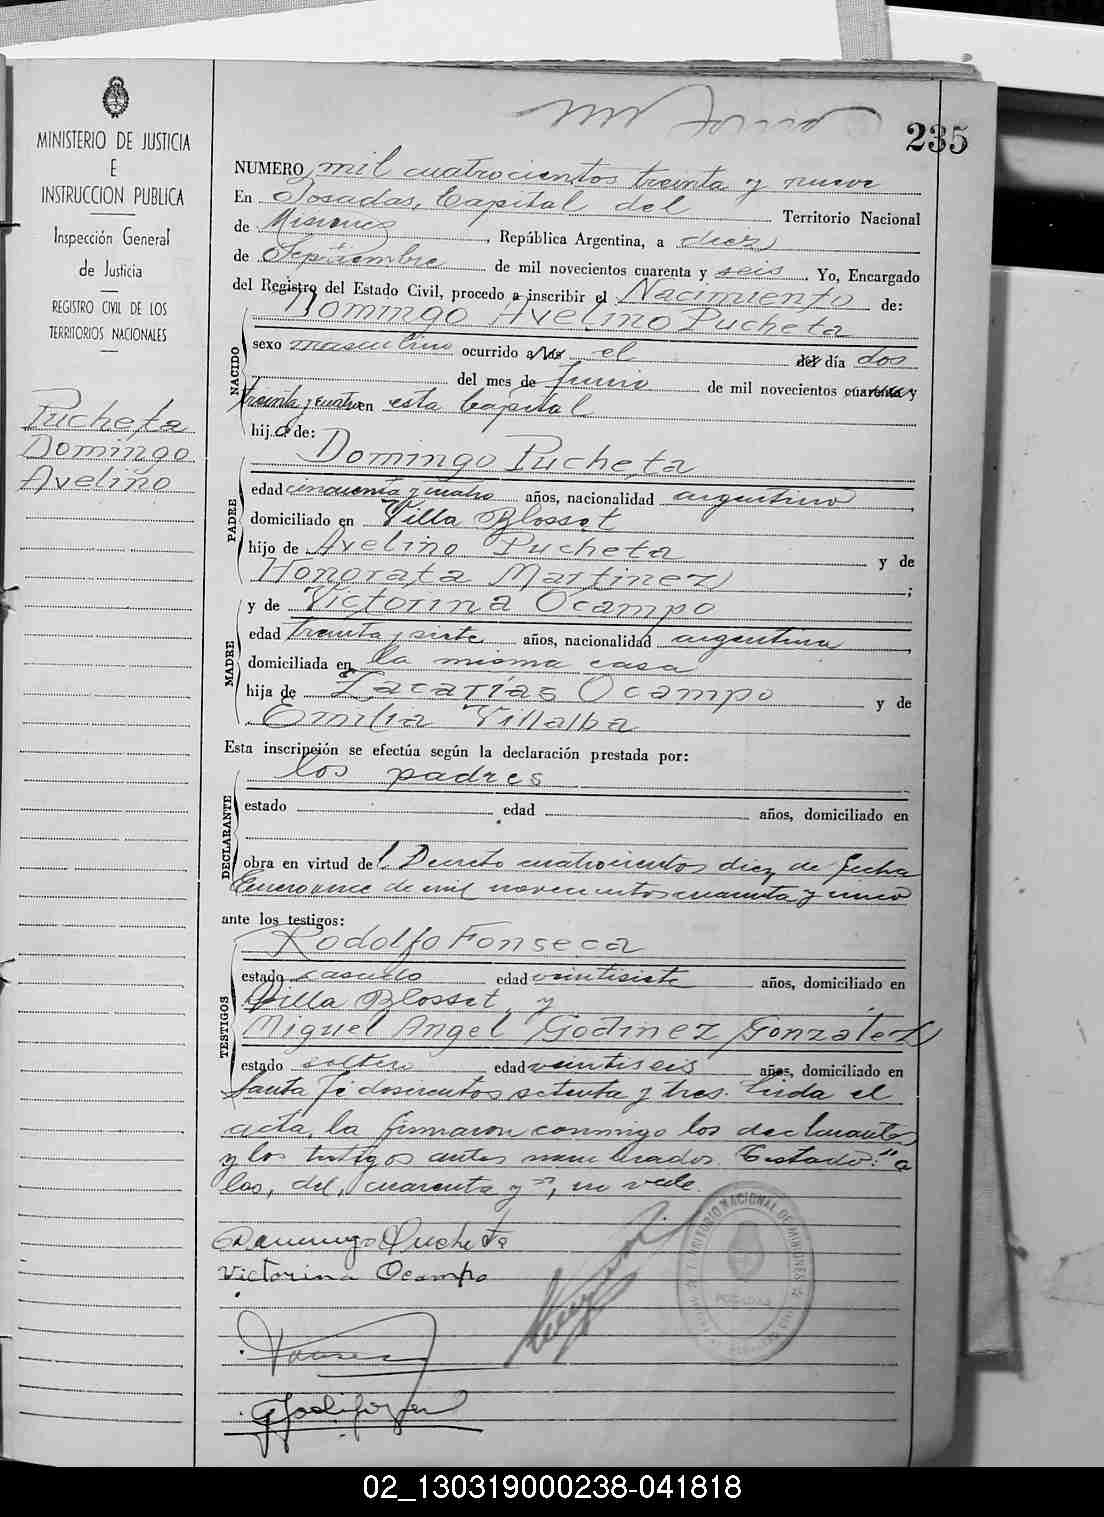 235
MINISTERIO DE JUSTICIA
E
INSTRUCCION PUBLICA
Inspección General
de Justicia
REGISTRO CIVIL DE LOS
TERRITORIOS NACIONALES
Pucheta
Domingo
Avelino
NUMERO mil cuatrocientos treinta y nueve
En Posadas, Capital del Territorio Nacional
de Misiones, República Argentina, a diez
de Septiembre de mil novecientos cuarenta y seis. Yo, Encargado
del Registro del Estado Civil, procedo a inscribir el Nacimiento de:
NACIDO
Domingo Avelino Pucheta
sexo masculino ocurrido a las el del día dos
del mes de Junio de mil novecientos cuarenta y
treinta y cuatro en esta Capital
hijo de:
PADRE
Domingo Pucheta
edad cincuenta y cuatro años, nacionalidad argentino
domiciliado en Villa Blosset
hijo de Avelino Pucheta y de
Honorata Martinez;
MADRE
y de Victorina Ocampo
edad treinta y siete años, nacionalidad argentina
domiciliada en la misma casa
hija de Zacarías Ocampo y de
Emilia Villalba
Esta inscripción se efectúa según la declaración prestada por:
DECLARANTE
los padres
estado edad años, domiciliado en
obra en virtud del Decreto cuatrocientos diez de fecha
Enero once de mil novecientos cuarenta y cinco
ante los testigos:
TESTIGOS
Rodolfo Fonseca
estado casado edad veintisiete años, domiciliado en
Villa Blosset, y
Miguel Angel Godinez Gonzalez
estado soltero edad veintiseis años, domiciliado en
Santa Fé doscientos setenta y tres. Leida el
acta, la firmaron conmigo los declarantes
y los testigos antes nombrados. Testado: "a
las, del, cuarenta y", no vale.
Domingo Pucheta
Victorina Ocampo
TERRITORIO NACIONAL DE MISIONES
POSADAS
02_130319000238-041818